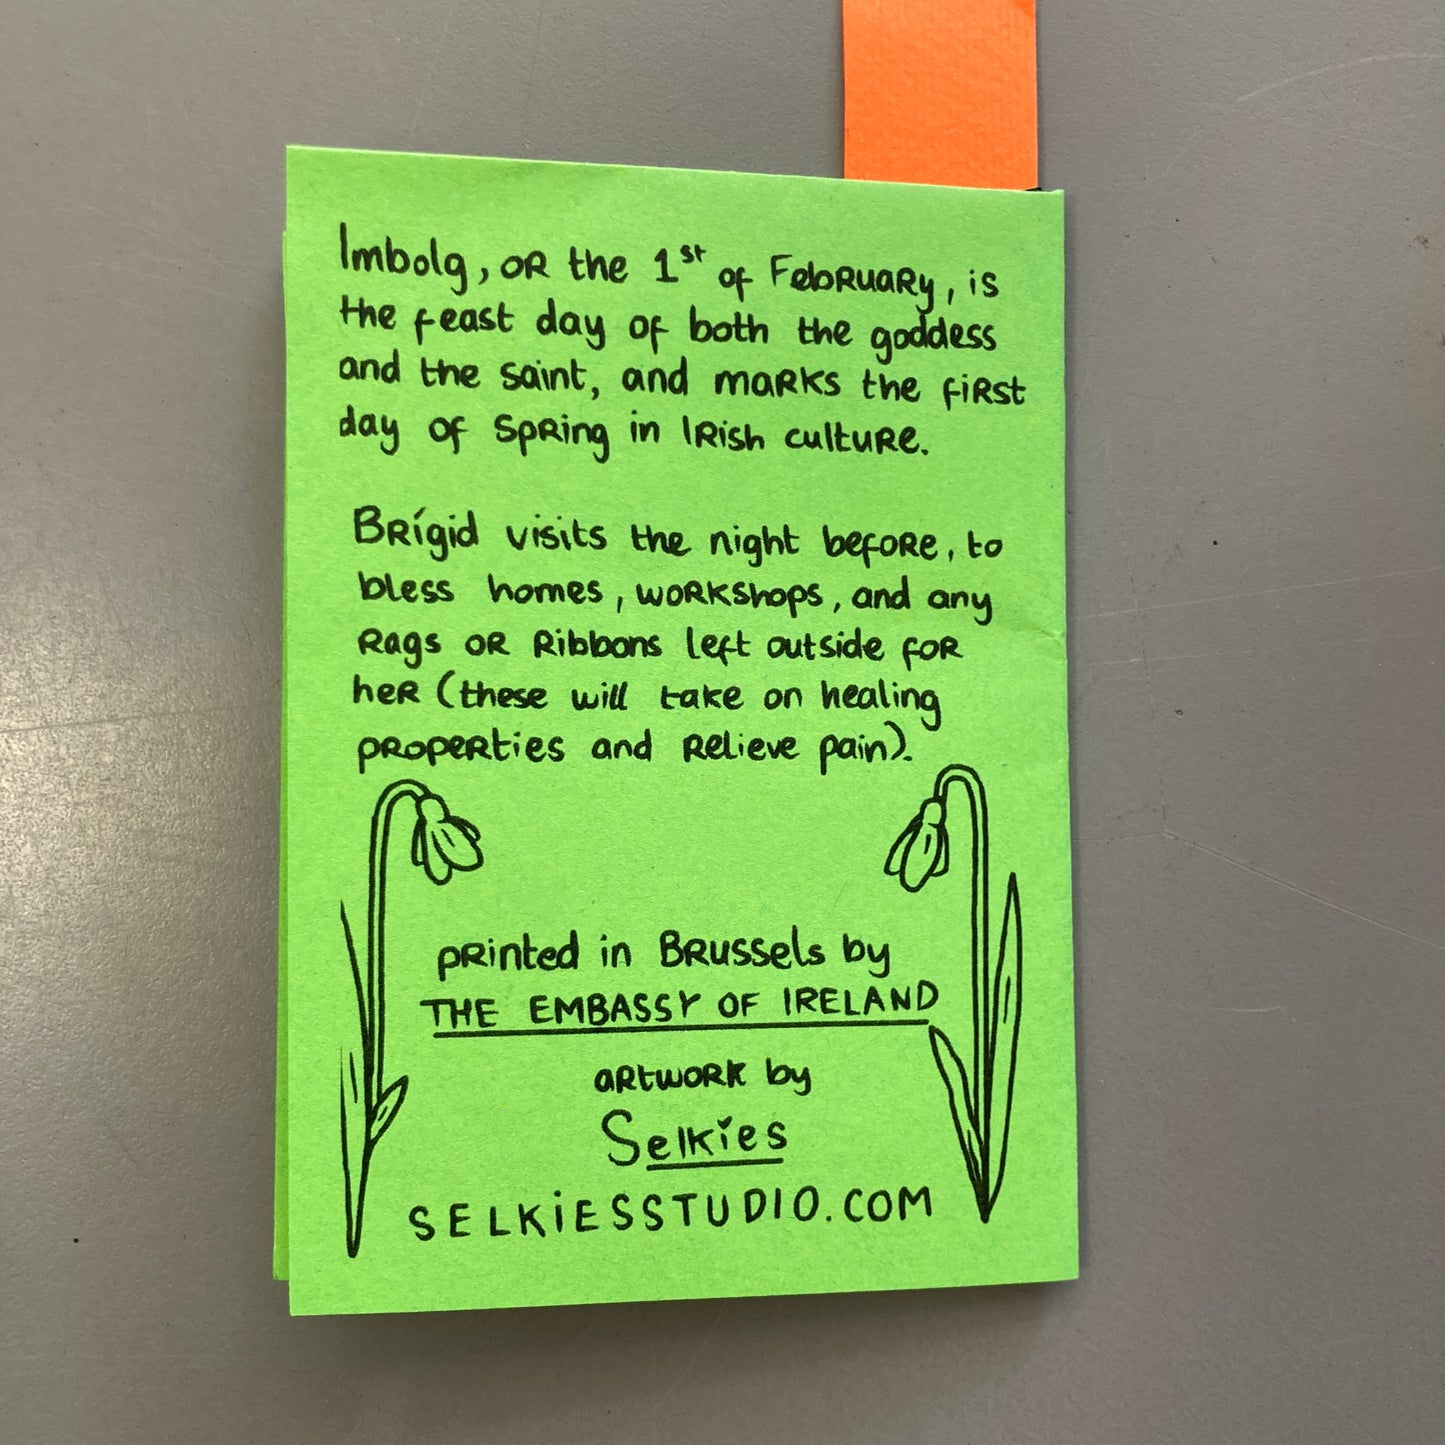 Imbolg, or the 1st of February, is
the feast day of both the goddess
and the saint, and marks the first
day of Spring in Irish culture.
Brígid visits the night before, to
bless homes, workshops, and any
rags or ribbons left outside for
her (these will take on healing
properties and relieve pain).
printed in Brussels by
THE EMBASSY OF IRELAND
artwork by
Selkies
SELKiESSTUDIO.COM